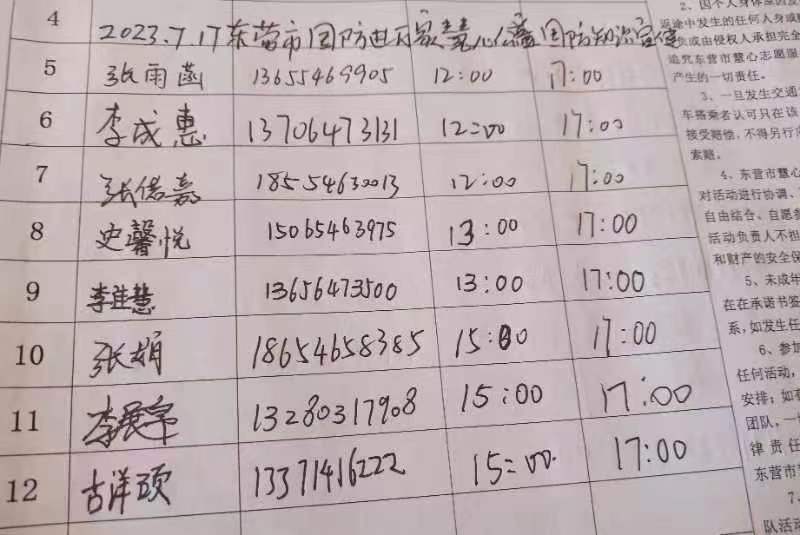 4 2023.7.17东营市国防进万家慧心公益国防知识宣传
5 张雨菡 13655469905 12:00 17:00
6 李成惠 13706473131 12:00 17:00
7 张倍嘉 18554630013 12:00 17:00
8 史馨悦 15065463975 13:00 17:00
9 李佳慧 13656473500 13:00 17:00
10 张娟 18654658385 15:00 17:00
11 李展宇 13280317908 15:00 17:00
12 古洋硕 13371416222 15:00 17:00
2、因个人身体原因及
返途中发生的任何人身或财
负或由侵权人承担完全
追究东营市慧心志愿服
产生的一切责任。
3、一旦发生交通
车搭乘者认可只在该
接受赔偿，不得另行
索赔。
4、东营市慧心
对活动进行协调、
自由结合、自愿参
活动负责人不担
和财产的安全保
5、未成年
在在承诺书签
系，如发生任
6、参加
任何活动，
安排；如有
团队，一
律责任
东营市
7、
队活动